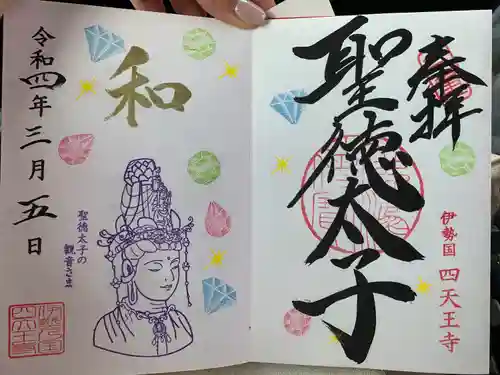 奉拝
聖徳太子
伊勢国 四天王寺
和
聖徳太子の
観音さま
令和四年三月五日